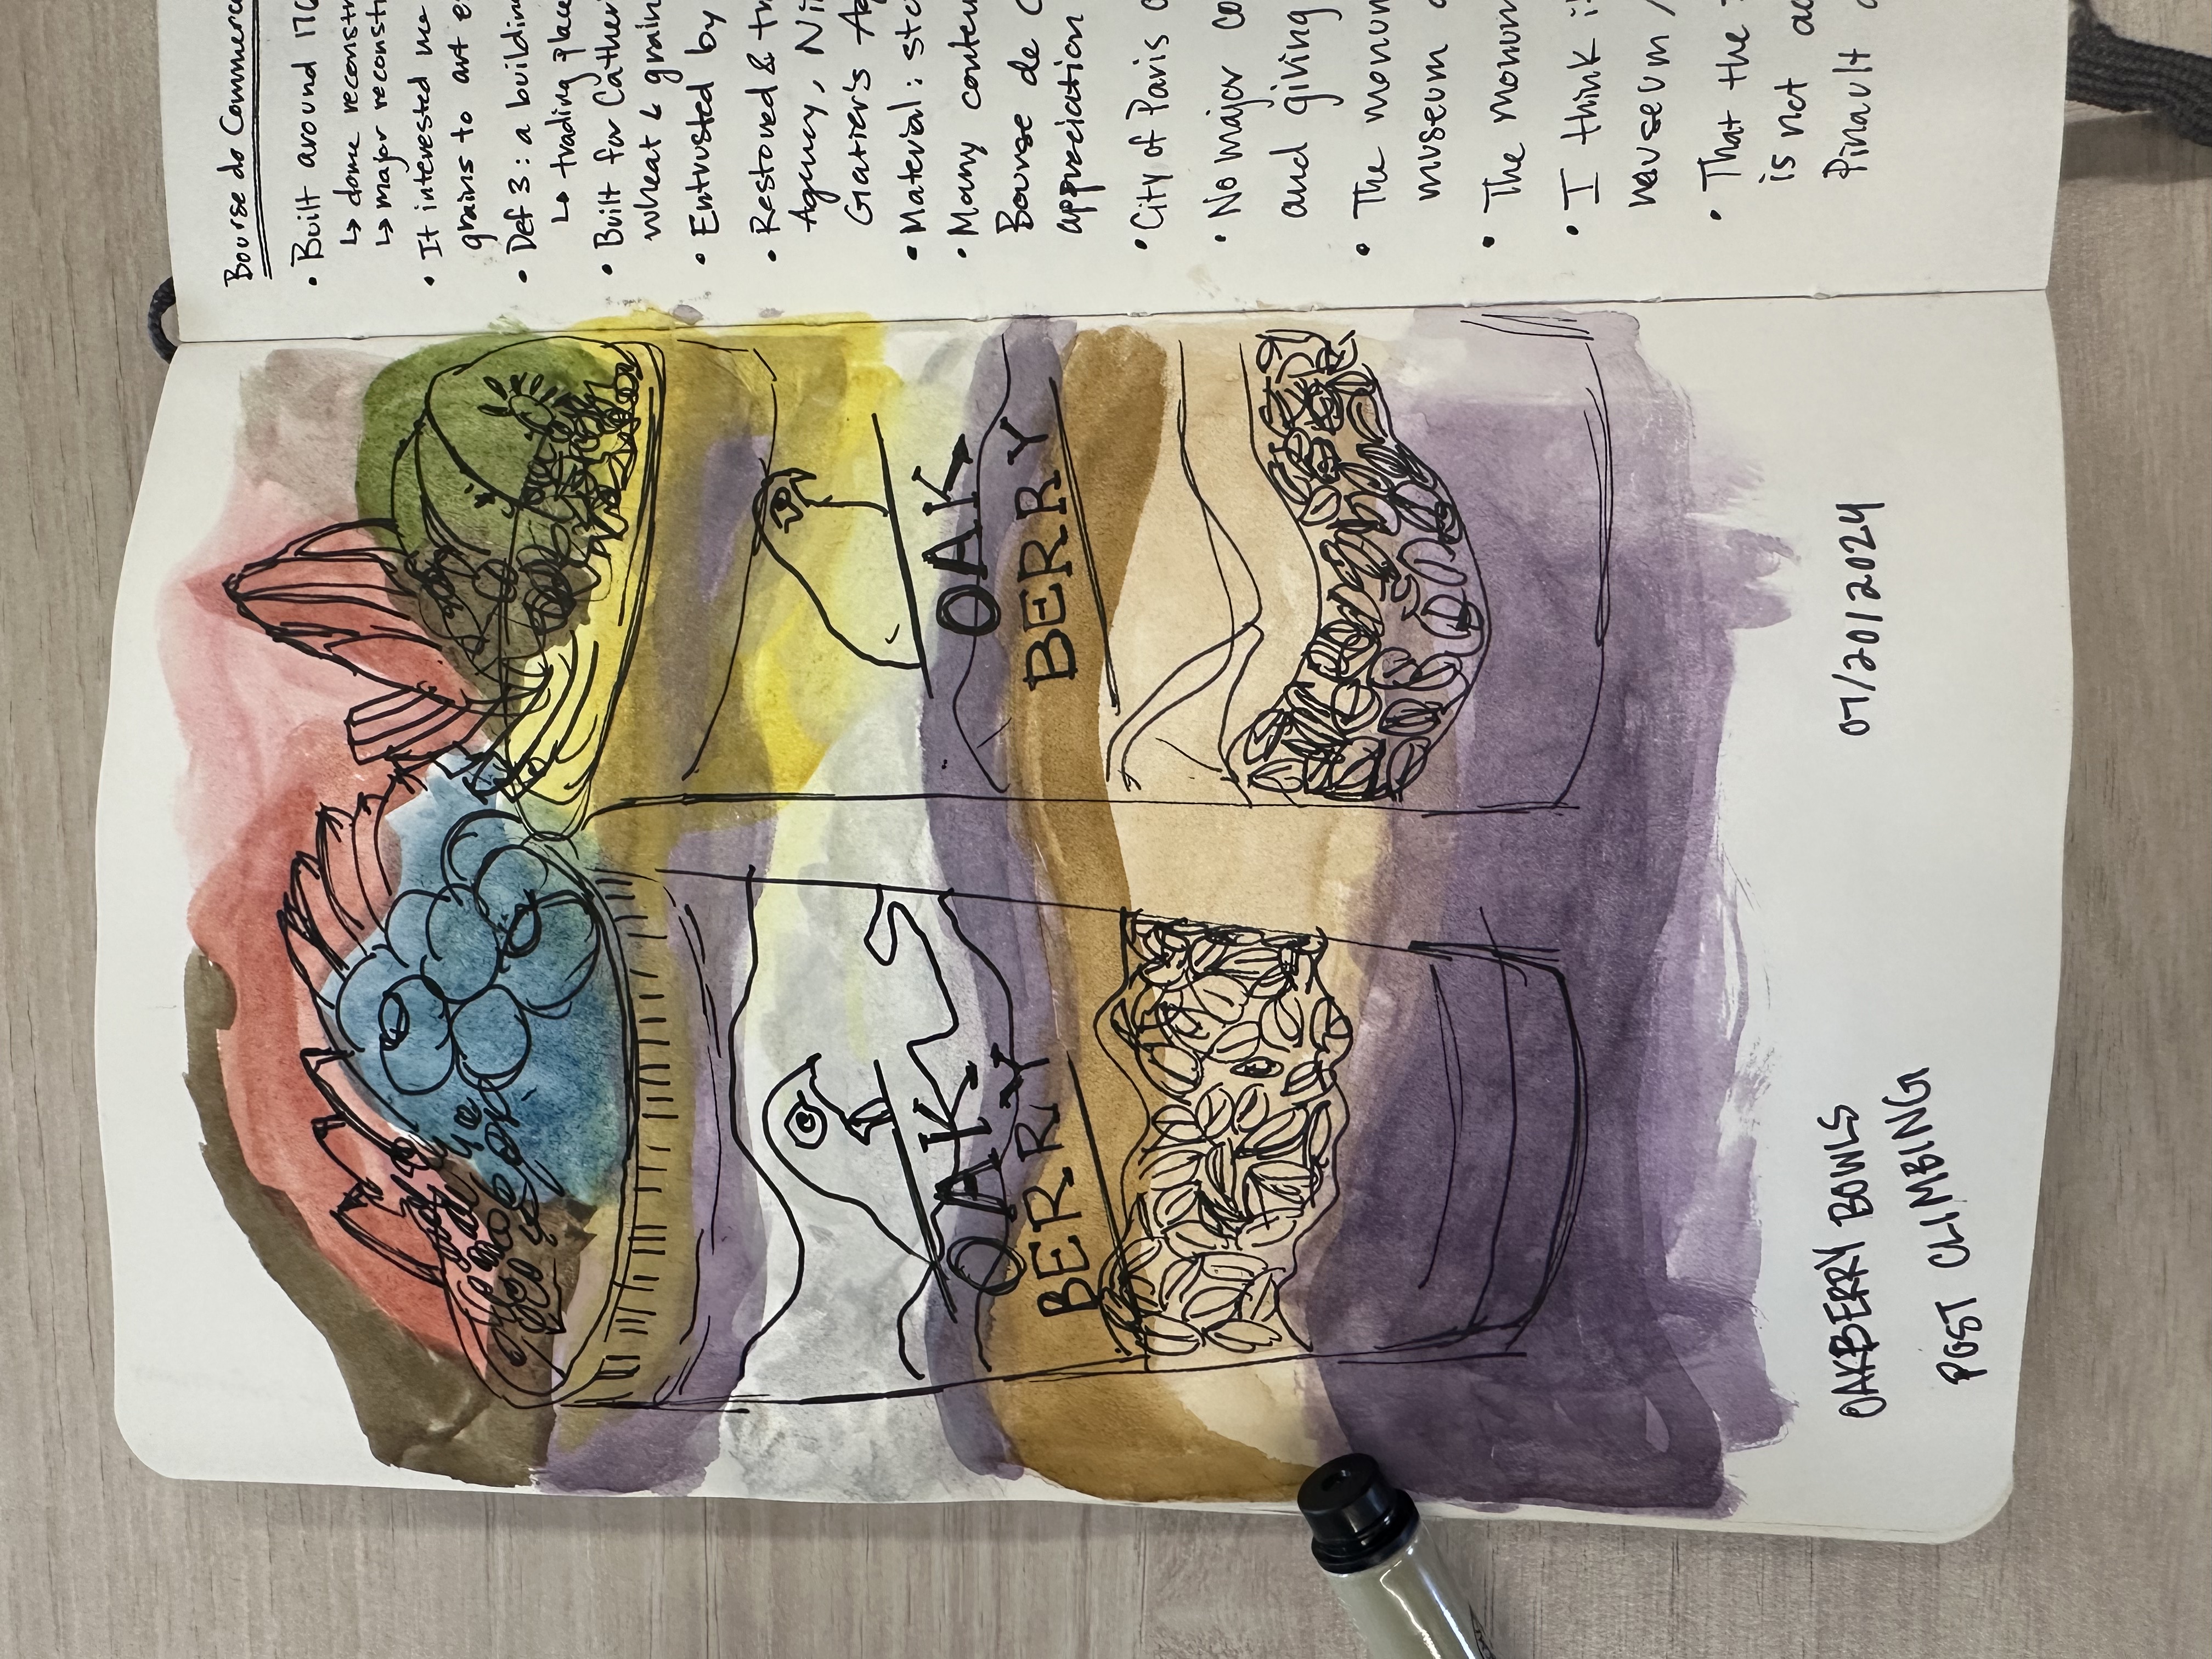 OAK
BERRY
OAK
BERRY
OAKBERRY BOWLS
POST CLIMBING
07/20/2024
Bourse do Commerce
• Built around 176
↳ dome reconstr
↳ major reconstr
• It interested me
grains to art e
• Def 3: a building
↳ trading place
• Built for Cather
wheat & grain
• Entrusted by
• Restored & tr
Agency, Ni
Gatier's Ag
• Material: sto
• Many conte
Bourse de C
appreciation
• City of Paris
• No major co
and giving
• The monum
museum
• The monum
• I think it
museum /
• That the
is not ac
Pinault